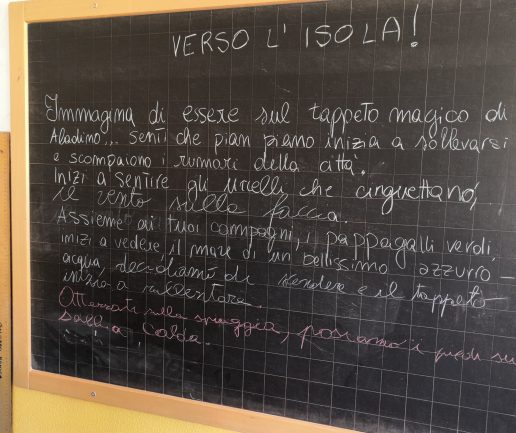 VERSO L'ISOLA!
Immagina di essere sul tappeto magico di
Aladino... senti che pian piano inizia a sollevarsi
e scompaiono i rumori della città.
Inizi a sentire gli uccelli che cinguettano,
il vento sulla faccia.
Assieme ai tuoi compagni, i pappagalli verdi,
inizi a vedere il mare di un bellissimo azzurro
acqua, decidiamo di scendere e il tappeto
inizia a rallentare.
Atterrati sulla spiaggia, posiamo i piedi su
sabbia calda.